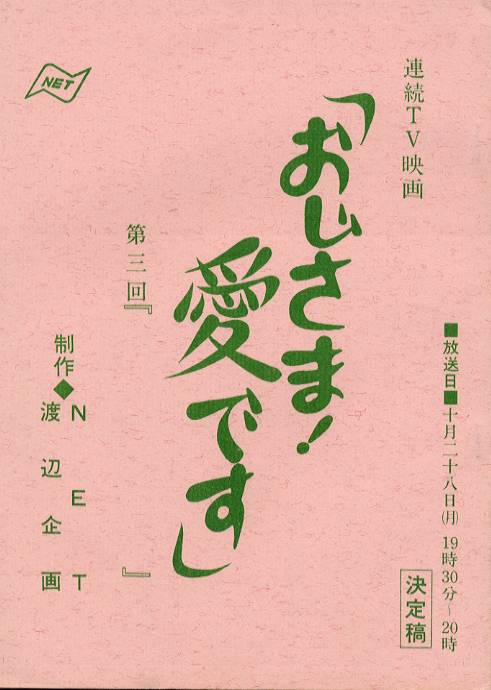 連続TV映画
「おじさま!
愛です」
第三回『 』
制作◆NET
渡辺企画
■放送日■十月二十八日(月) 19時30分~20時
決定稿
NET